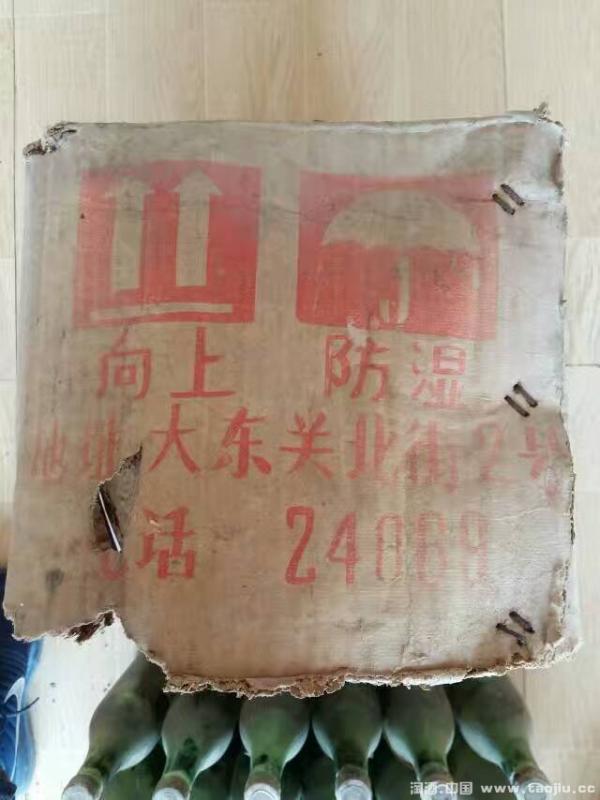 向上 防湿
地址大东关北街2号
话 24
淘酒.中国 www.taojiu.cc